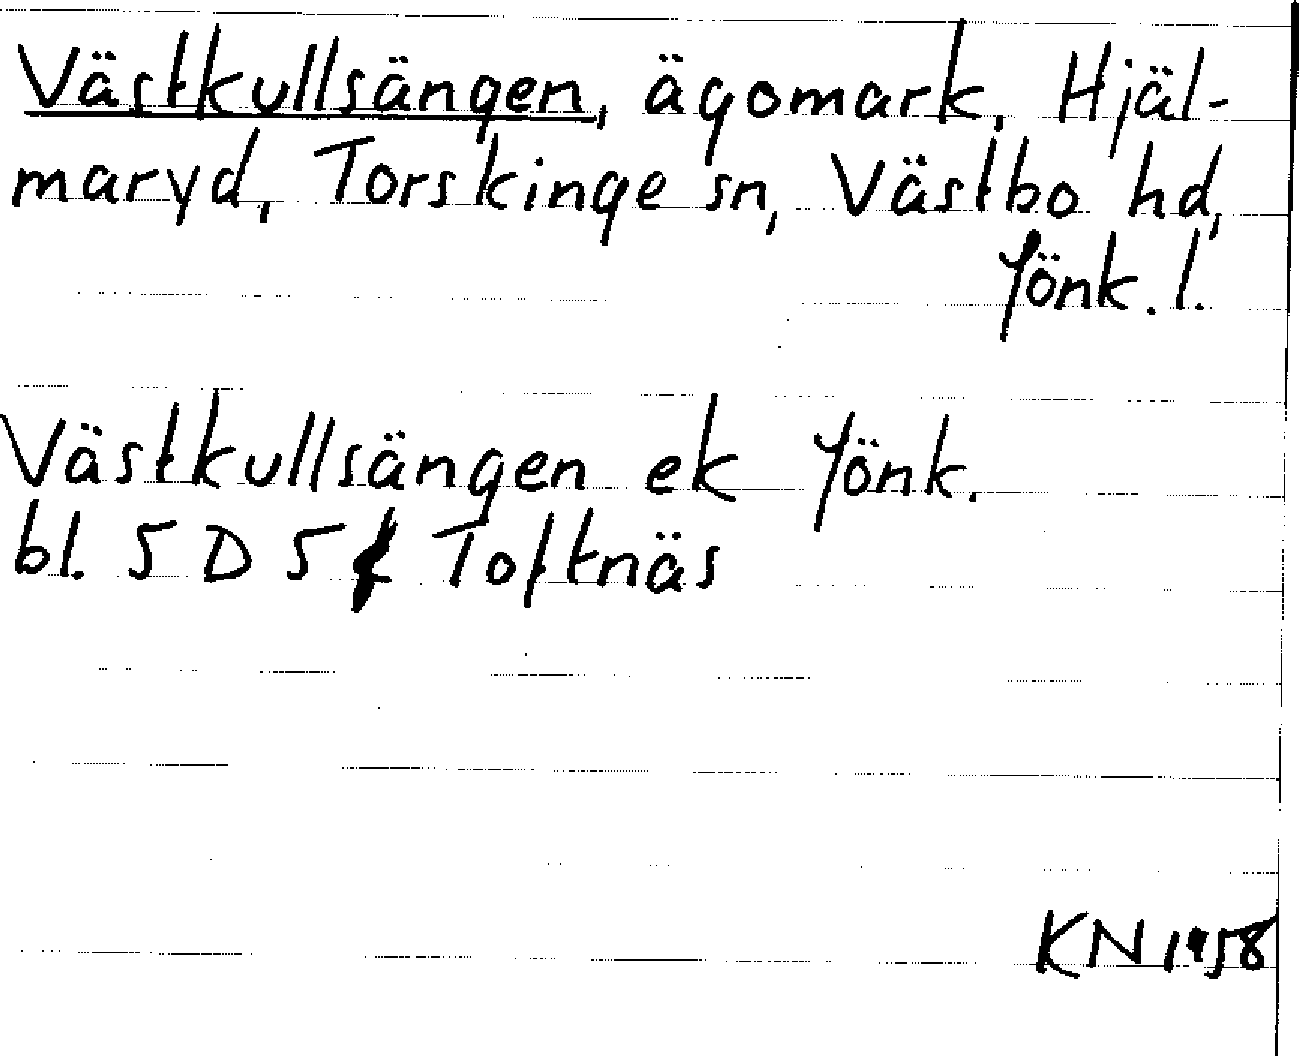 Västkullsängen, ägomark, Hjäl-
maryd, Torskinge sn, Västbo hd,
Jönk. l.
Västkullsängen ek Jönk.
bl. 5 D 5 f Toftnäs
KN 1958